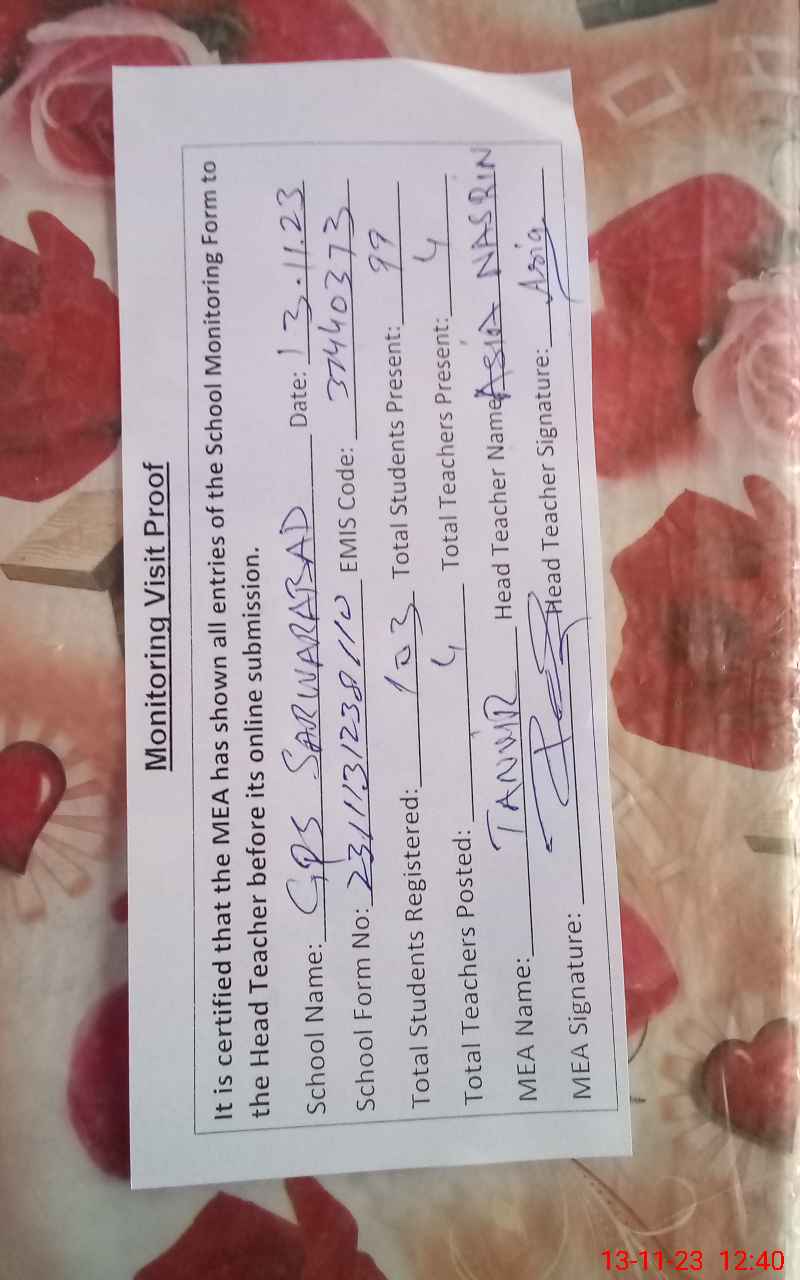 Monitoring Visit Proof
It is certified that the MEA has shown all entries of the School Monitoring Form to
the Head Teacher before its online submission.
School Name: GPS SARWARABAD Date: 13.11.23
School Form No: 2311131238110 EMIS Code: 37440373
Total Students Registered: 103 Total Students Present: 99
Total Teachers Posted: 4 Total Teachers Present: 4
MEA Name: TANVIR Head Teacher Name: ASIA NASRIN
MEA Signature: Head Teacher Signature: Asia
13-11-23 12:40